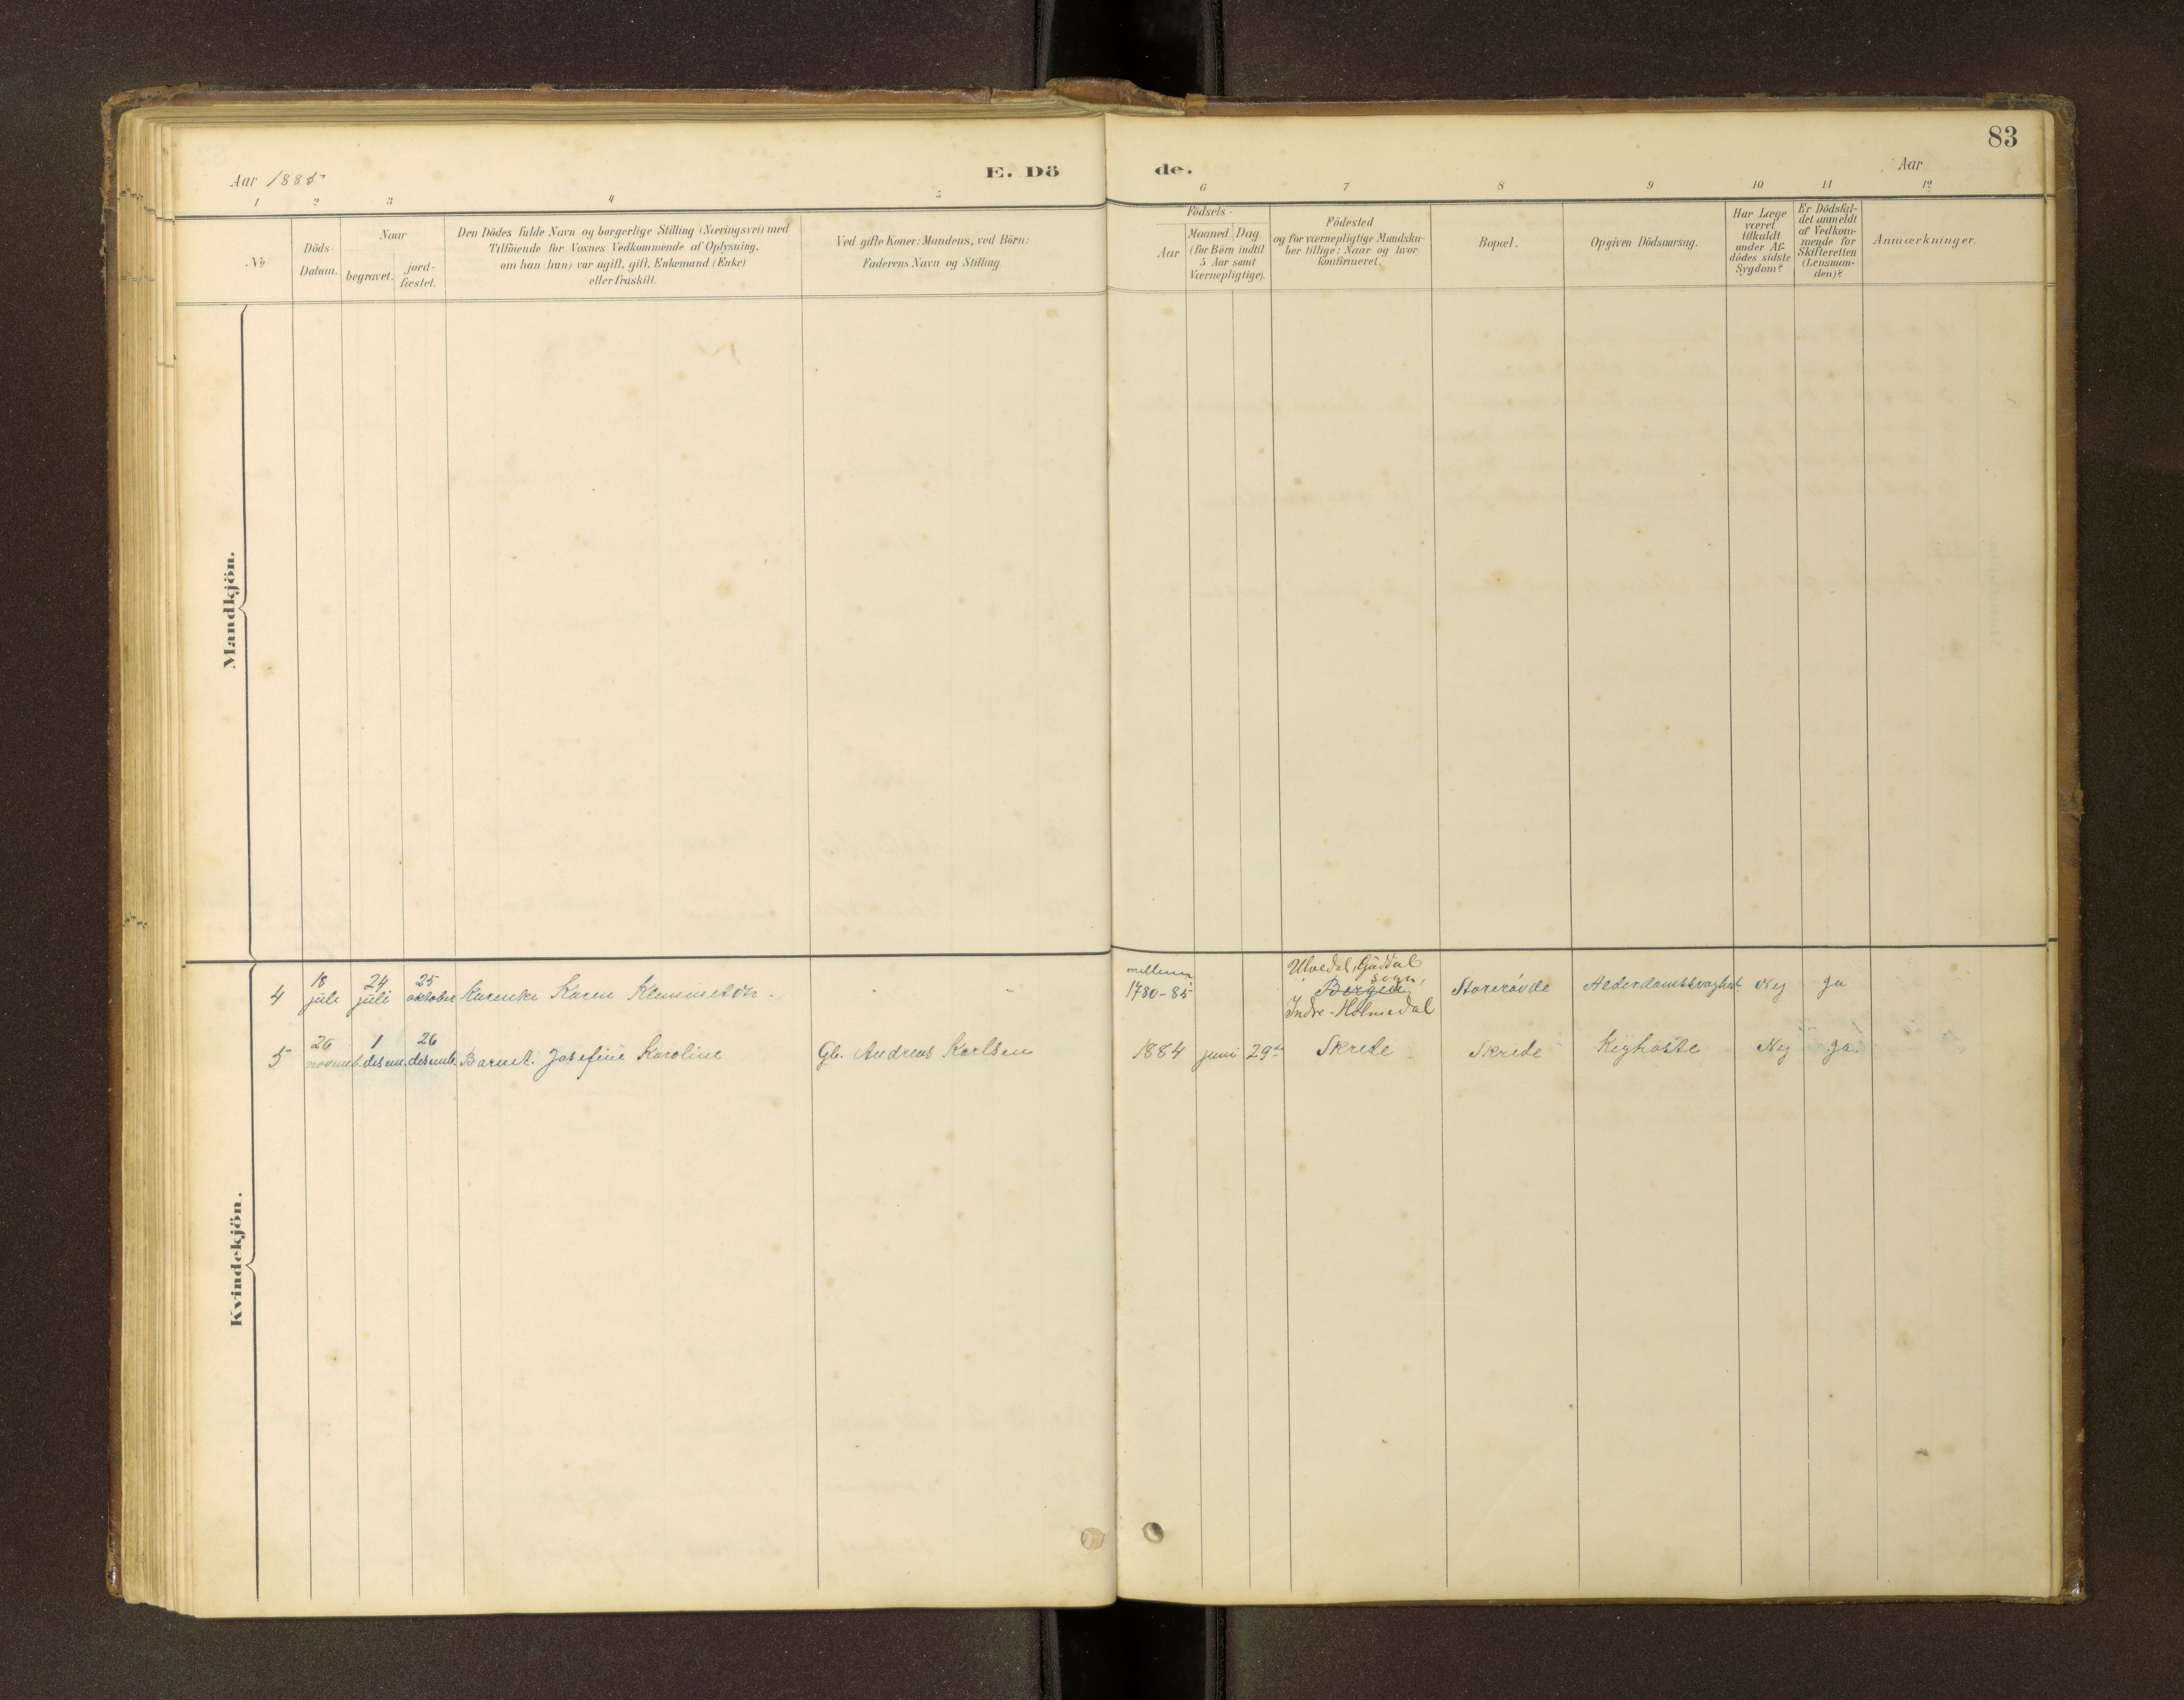 83
Aar 1885
E. Dö
de.
Aar
1 2 3 4 5 6 7 8 9 10 11 12
No
Döds-
Datum.
Naar
begravet.
jord-
fæstet.
Den Dödes fulde Navn og borgerlige Stilling (Næringsvei) med
Tilföiende for Voxnes Vedkommende af Oplysning,
om han (hun) var ugift, gift, Enkemand (Enke)
eller fraskilt.
Ved gifte Koner: Mandens, ved Börn:
Faderens Navn og Stilling.
Födsels-
Aar
Maaned. Dag.
(for Börn indtil
5 Aar samt
Værnepligtige).
Födested
og for værnepligtige Mandska-
ber tillige: Naar og hvor
konfirmeret.
Bopæl.
Opgiven Dödsaarsag.
Har Læge
været
tilkaldt
under Af-
dödes sidste
Sygdom?
Er Dödsfal-
det anmeldt
af Vedkom-
mende for
Skifteretten
(Lensman-
den)?
Anmærkninger.
Mandkjön.
4
18
juli
24
juli
25
oktober
Karen Klemmetdtr.
mellem
1780-85
Guddal
sogn,
Bergen
Indre-Holmedal
Alderdomssvaghet
Nej
ja
5
26
novmeb.
1
desem.
26
desemb.
Barnet. Josefine Karoline
Gb. Andreas Karlsen
1884 juni 29de
Skrede
Skrede
Kighoste
Nej
ja.
Kvindekjön.